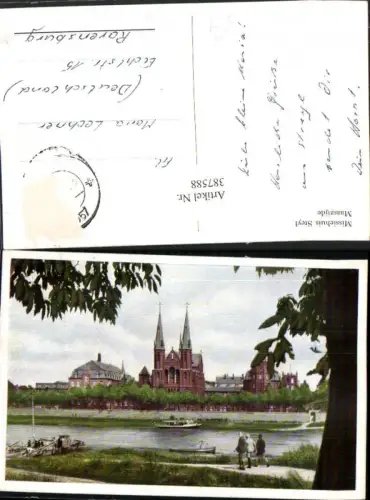 Missiehuis Steyl
Maaszijde
Liebe kleine Maria!
Herzliche Grüße
aus Steyl
sendet Dir
Dein
Frl.
Maria Lechner
(Deutschland)
Eichelstr. 15
Ravensburg
57
Artikel Nr.
387588